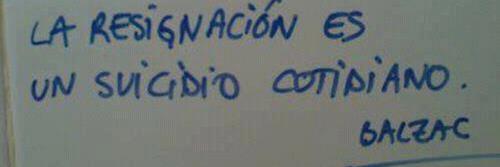 LA RESIGNACIÓN ES
UN SUICIDIO COTIDIANO.
BALZAC